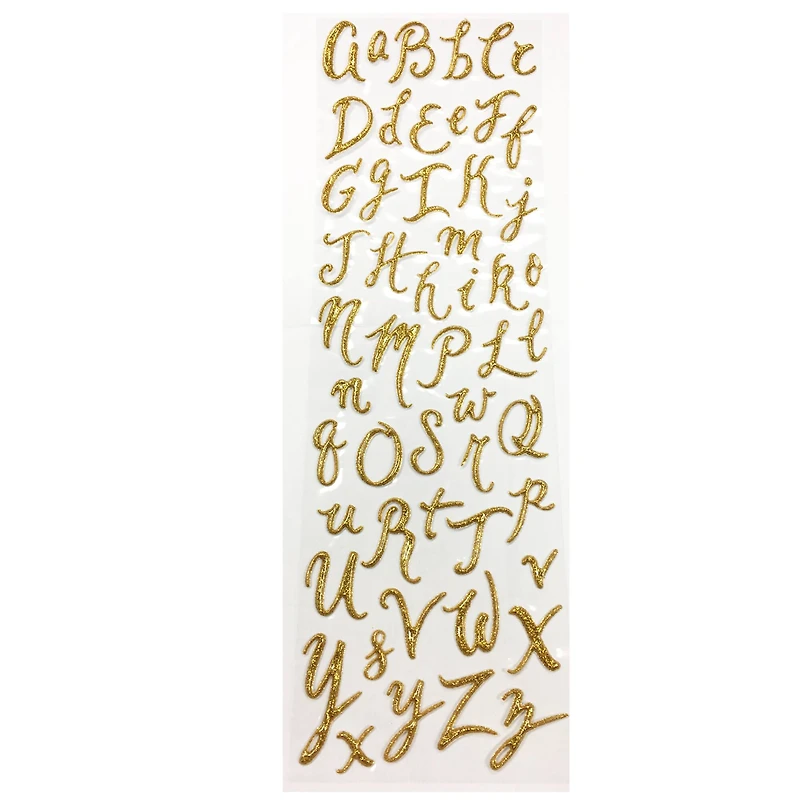 A a B b C c
D d E e F f
G g I K j
J H m h i k o
N M P L l
n w
q O S r Q
u R t T p
U V W v
Y s X
x y Z z